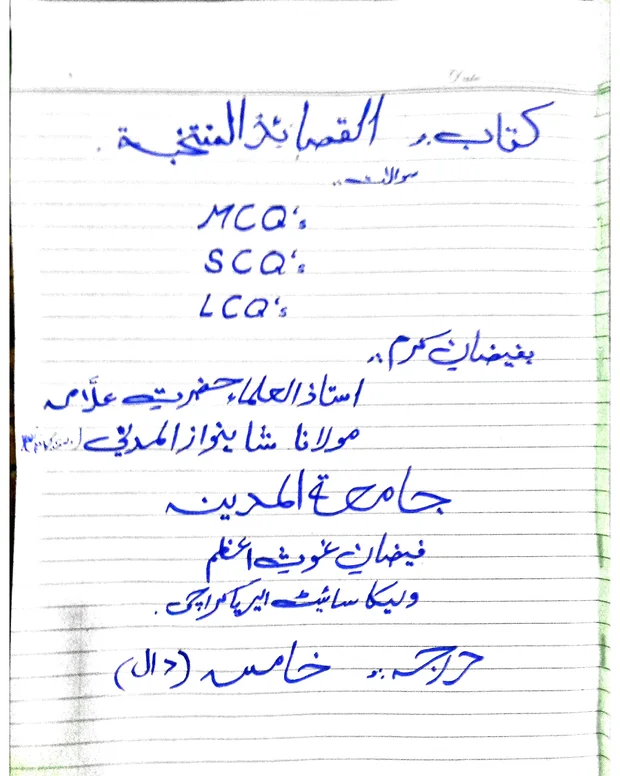 Date
کتاب:۔ القصائد المنتخبۃ
سوالات:۔
MCQ's
SCQ's
LCQ's
بفیضانِ کرم:۔
استاذ العلماء حضرت علامہ
مولانا شاہنواز المدنی
جامعۃ المدینہ
فیضانِ غوثِ اعظم
ولیکا سائیٹ ایریا کراچی۔
درجہ:۔ خامسہ (دال)